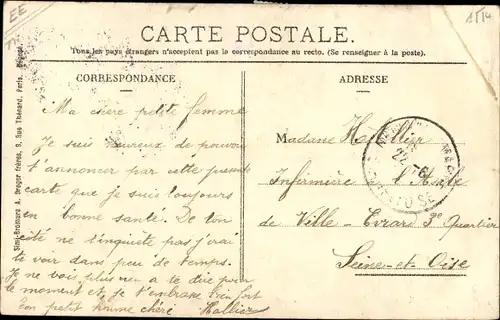 EE
1514
CARTE POSTALE.
Tous les pays étrangers n'acceptent pas la correspondance au recto. (Se renseigner à la poste).
CORRESPONDANCE
Ma chère petite femme
Je suis heureux de pouvoir
t'annoncer par cette présente
carte que je suis toujours
en bonne santé. De ton
côté ne t'inquiète pas j'irai
te voir dans peu de temps.
Je ne vois plus rien a te dire pour
le moment et je t'embrasse bien fort
Ton petit homme chère Hallier
ADRESSE
Madame Hallier
Infirmière l'Asile
de Ville-Evrard 3e Quartier
Seine-et-Oise
Simi-Bromure A. Breger frères, 9, Rue Thénard, Paris.
SEINE ET OISE